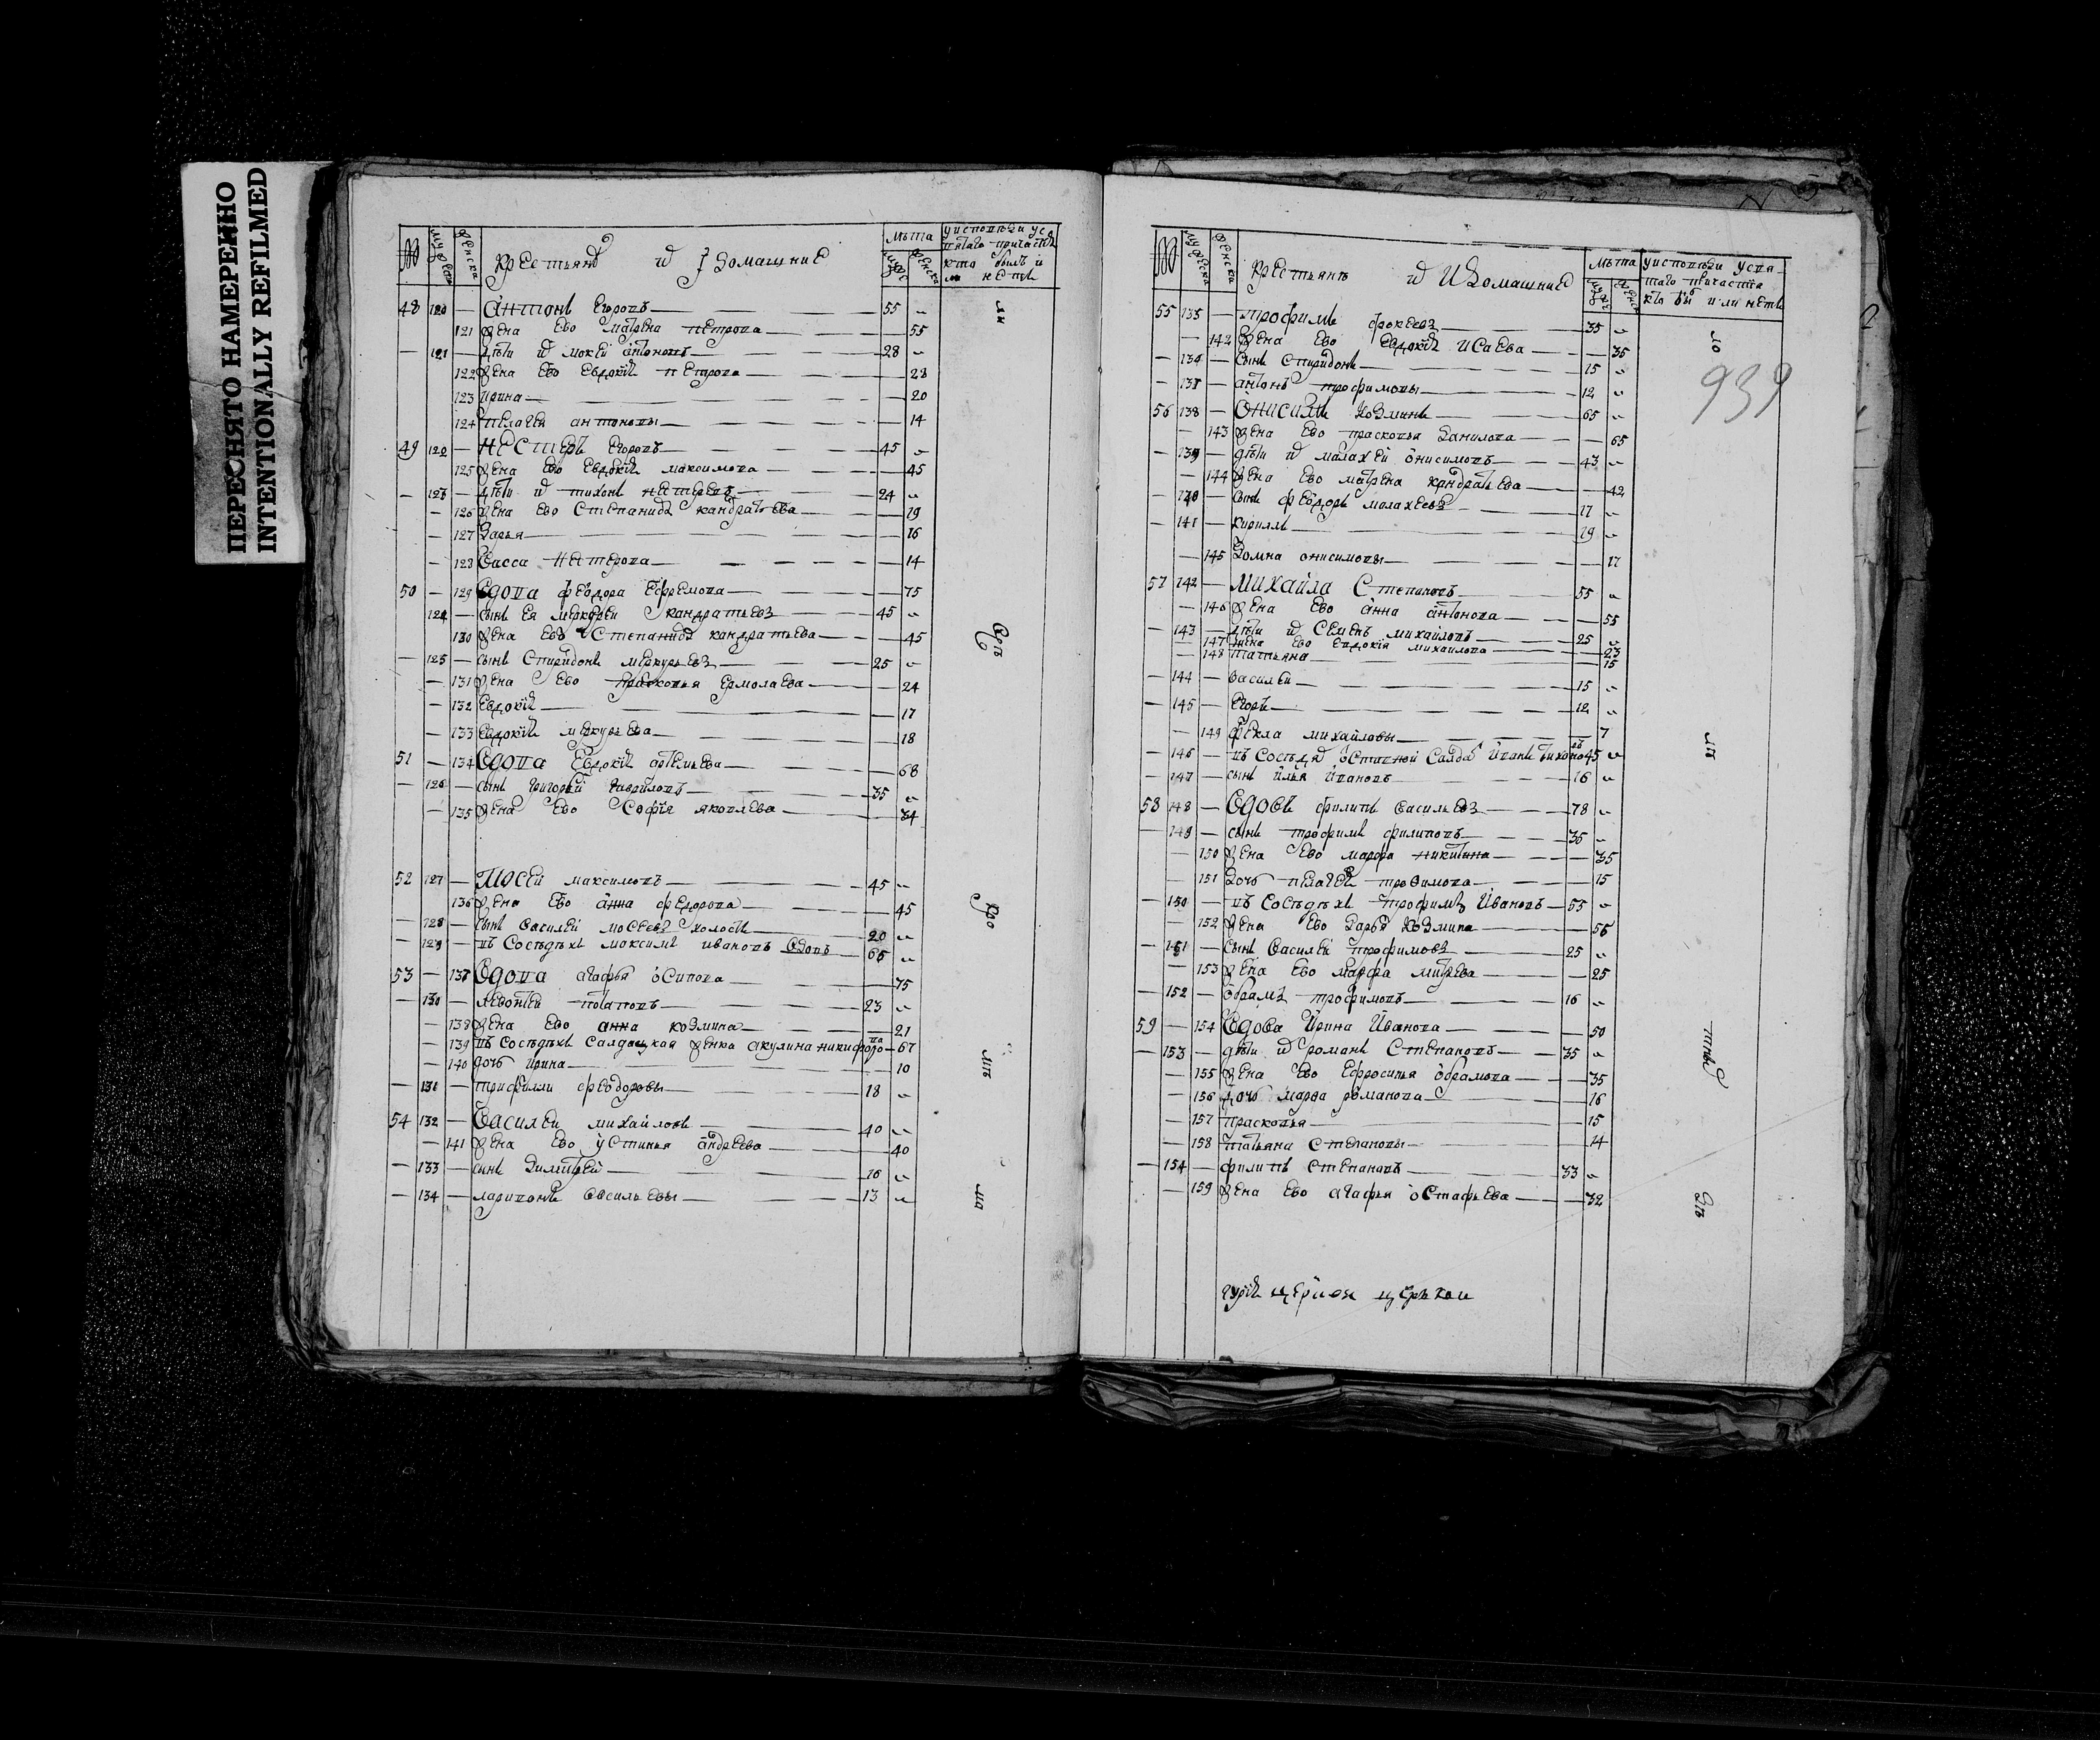 ПЕРЕСНЯТО НАМЕРЕННО
INTENTIONALLY REFILMED
мужеска женска крестьяне и домашние лѣта
48 120 — Антонъ Егоровъ — 55
121 жена Ево матрена петрова — 55
— 121 — дѣти и мокей антоновъ — 28
122 жена Ево Евдокия петрова — 28
123 ирина — 20
124 пелагея антоновы — 14
49 122 — Нестеръ Егоровъ — 45
125 жена Ево Евдокия максимова — 45
— 123 — дѣти и тихонъ нестеревъ — 24
— 126 жена Ево Степанида кандратьева — 19
— 127 Дарья — 16
— 128 Васса Нестерова — 14
50 — 129 Вдова феодора Ефремова — 75
124 — сынъ Ея меркурей кандратьевъ — 45
130 жена Ево Степанида кандратьева — 45
— 125 — сынъ Спиридонъ меркурьевъ — 25
— 131 жена Ево прасковья Ермолаева — 24
— 132 Евдокия — 17
— 133 Евдокия меркурьева — 18
51 — 134 Вдова Евдокия артемьева — 68
— 126 — сынъ григорей гавриловъ — 35
— 135 жена Ево Софья яковлева — 34
52 127 — Мосей максимовъ — 45
136 жена Ево анна федорова — 45
— 128 — сынъ Василей мосеевъ холостъ — 20
— 129 — въ Сосѣдѣхъ максимъ ивановъ вдовъ — 65
53 — 137 Вдова агафья осипова — 75
— 130 — левонтей потаповъ — 23
— 138 жена Ево анна козмина — 21
— 139 въ сосѣдѣхъ салдацкая женка акулина никифорова — 67
— 140 дочь ирина — 10
— 131 — трифилли феодоровы — 18
54 132 — Василей михайловъ — 40
— 141 жена Ево устинья андреева — 40
— 133 — сынъ димитрей — 16
— 134 — ларивонъ васильевы — 13
939
мужеска женска крестьянъ и Идомашние лѣта
55 135 — трофимъ фокеевъ — 35
— 142 жена Ево Евдокия Исаева — 35
— 136 — сынъ Спиридонъ — 15
— 137 — антонъ трофимовы — 12
56 138 — Онисимъ козминъ — 65
— 143 жена Ево прасковья Данилова — 65
— 139 — дѣти и малахей онисимовъ — 43
— 144 жена Ево матрена кандратьева — 42
— 140 — сынъ феодоръ малахеевъ — 17
— 141 — кирилъ — 19
— 145 Домна онисимовы — 17
57 142 — Михайла Степановъ — 55
— 146 жена Ево анна антонова — 55
— 143 — дѣти и Семенъ михайловъ — 25
— 147 жена Ево Евдокия михайлова — 23
— 148 татьяна — 15
— 144 — василей — 15
— 145 — Егоръ — 12
— 149 фекла михайловы — 7
— 146 — въ Сосѣдя отставной Салдатъ Иванъ тихоновъ 45
— 147 — сынъ илья ивановъ — 16
58 148 — Вдовъ филипъ васильевъ — 78
— 149 — сынъ трофимъ филиповъ — 35
— 150 жена Ево марфа никитина — 35
— 151 дочь пелагея трофимова — 15
— 150 — въ Сосѣдѣхъ трофимъ Ивановъ — 55
— 152 жена Ево Дарья козмина — 56
— 151 — сынъ василей трофимовъ — 25
— 153 жена Ево марфа митрева — 25
— 152 — обрамъ трофимовъ — 16
59 — 154 Вдова Ирина Иванова — 50
— 153 — дѣти и романъ Степановъ — 35
— 155 жена Ево Ефросинья обрамова — 35
— 156 дочь марфа романова — 16
— 157 прасковья — 15
— 158 татьяна степановы — 14
— 154 — филипъ степановъ — 33
— 159 жена Ево агафья остафьева — 32